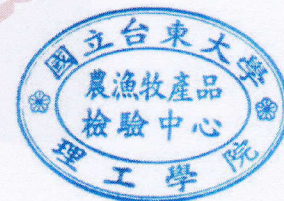 國立台東大學
農漁牧產品
檢驗中心
理工學院